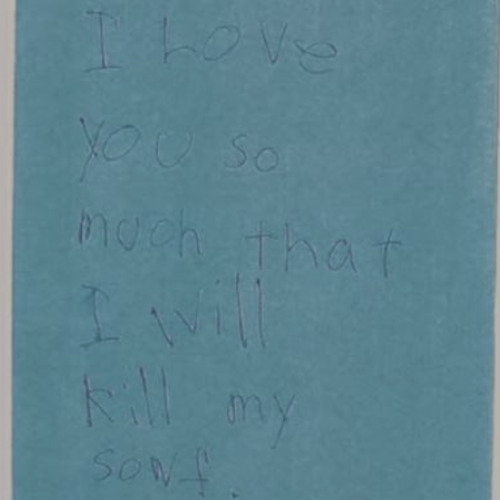 I Love
you so
much that
I will
kill my
sowf.